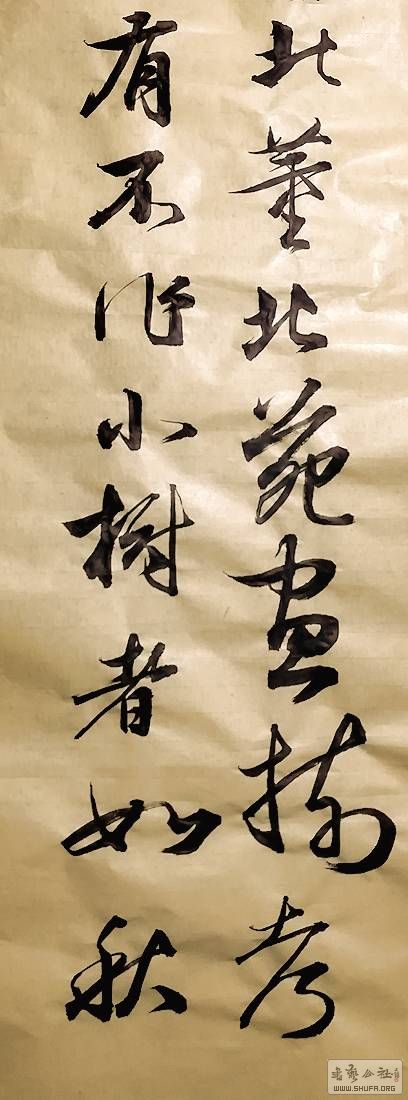 北董北苑畫樹考
有不作小樹者如秋
書藝公社
WWW.SHUFA.ORG